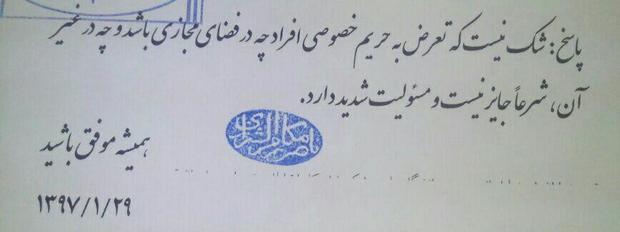 پاسخ: شک نیست که تعرض به حریم خصوصی افراد چه در فضای مجازی باشد و چه در غیر
آن، شرعاً جایز نیست و مسئولیت شدید دارد.
ناصر مکارم الشیرازی
همیشه موفق باشید
۱۳۹۷/۱/۲۹